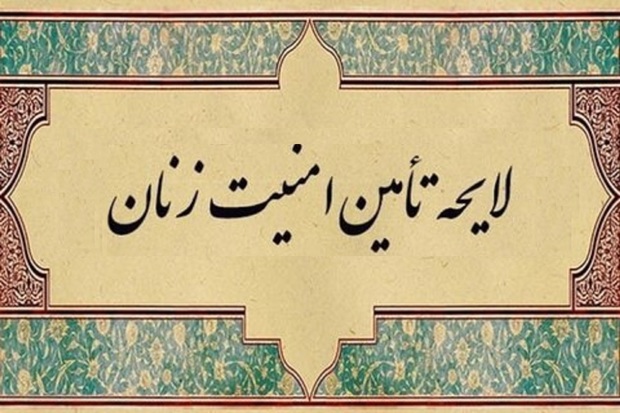 لایحه تأمین امنیت زنان